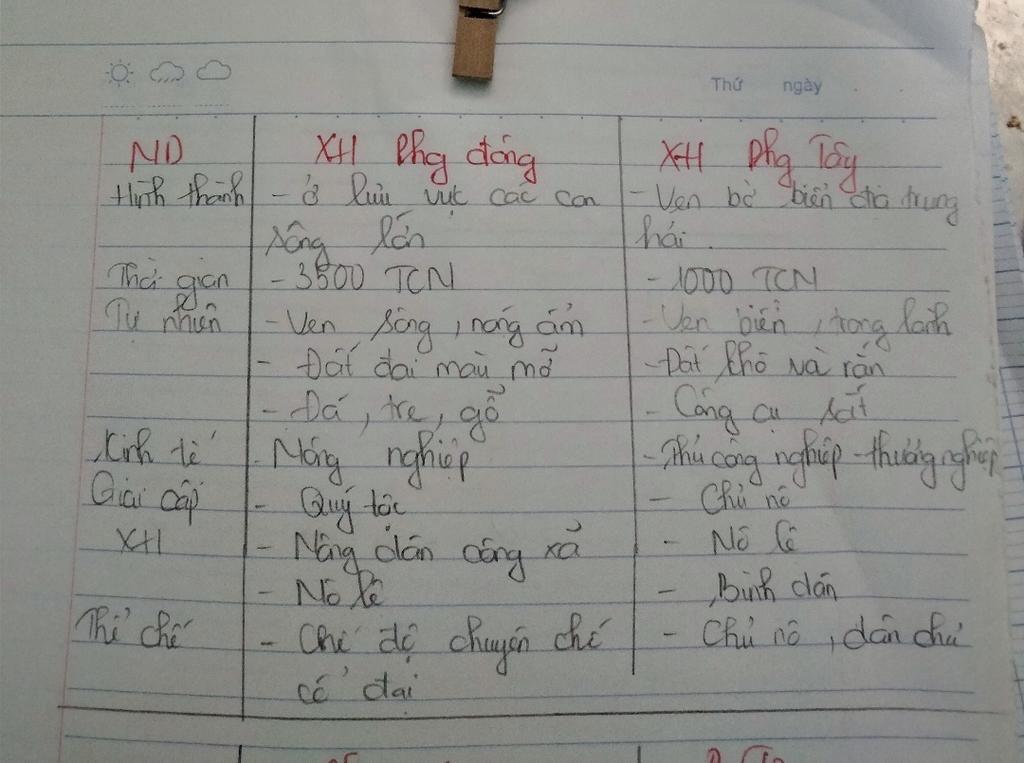 Thứ ngày
ND XH Phg đông XH Phg Tây
Hình thành - ở lưu vực các con - Ven bờ biển địa trung
sông lớn hải.
Thời gian - 3500 TCN - 1000 TCN
Tự nhiên - Ven sông, nóng ẩm - Ven biển, trong lành
- Đất đai màu mỡ - Đất khô và rắn
- Đá, tre, gỗ - Công cụ sắt
Kinh tế - Nông nghiệp - Thủ công nghiệp - thương nghiệp
Giai cấp - Quý tộc - Chủ nô
XH - Nông dân công xã - Nô lệ
- Nô lệ - Bình dân
Thể chế - Chế độ chuyên chế - Chủ nô, dân chủ
cổ đại